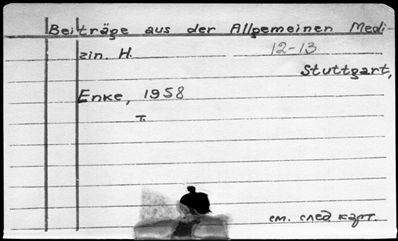 Beiträge aus der Allgemeinen Medi-
zin. H. 12-13
Stuttgart,
Enke, 1958
T.
см. след карт.